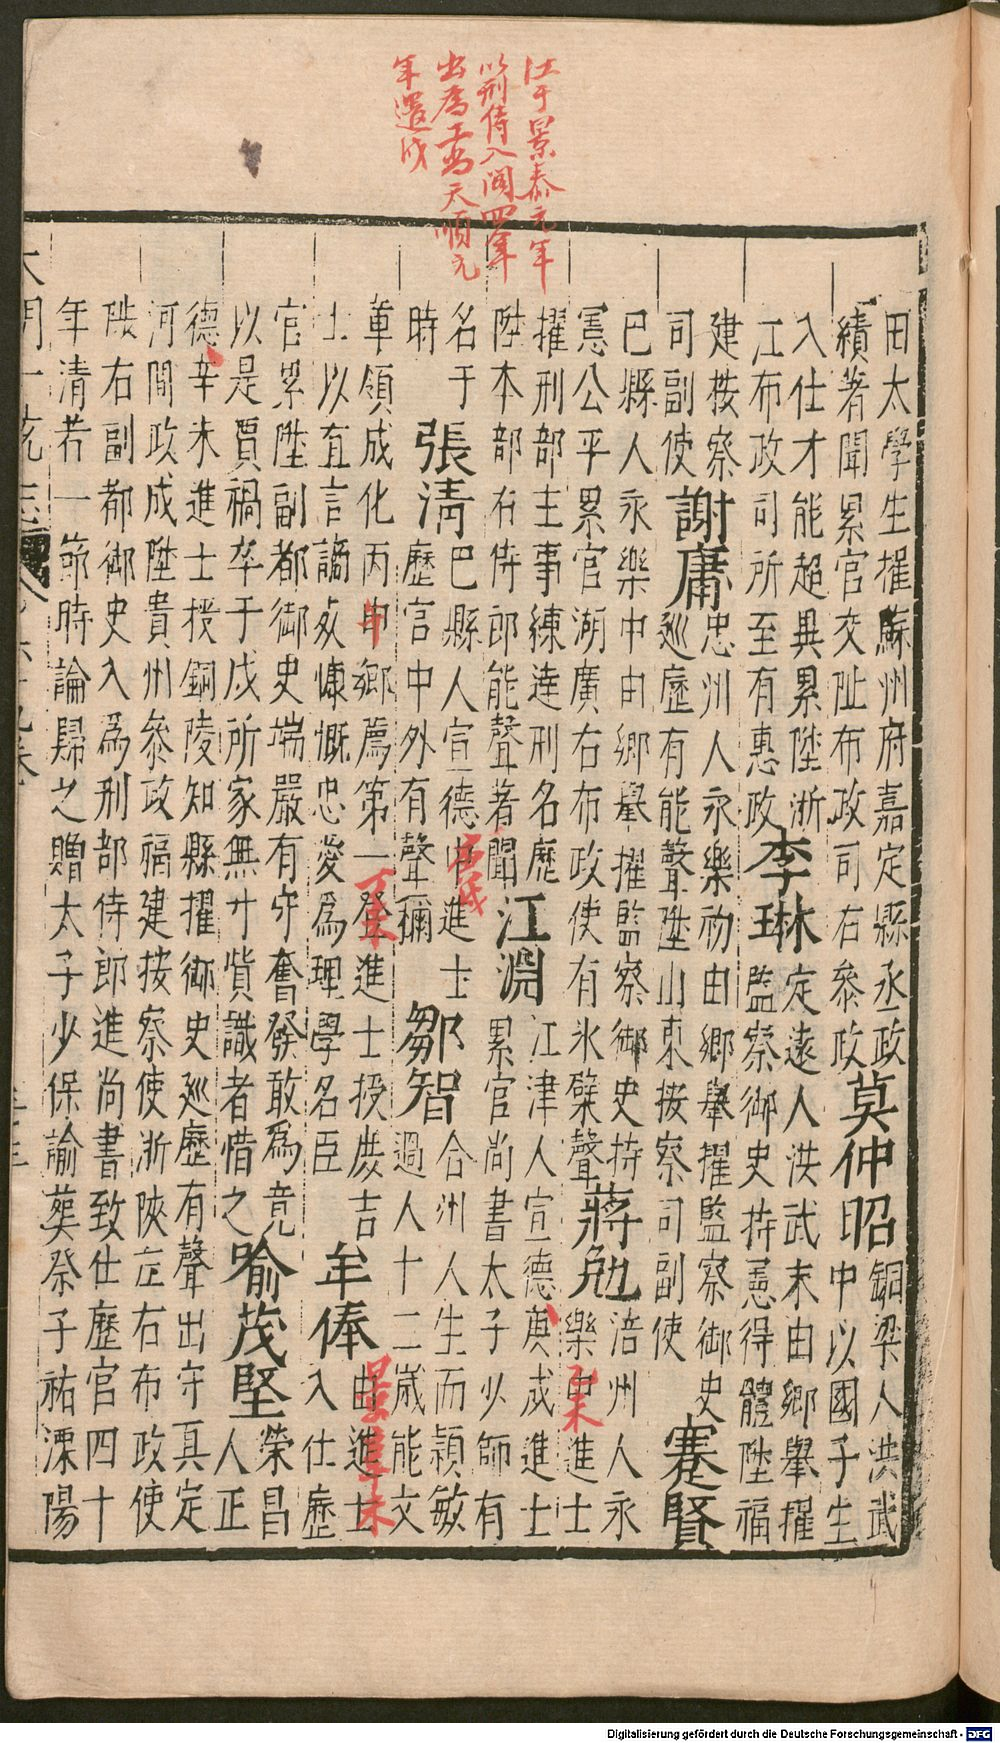 江于景泰元年
以刑侍入閣四年
出爲工尚天順元
年還戍
田太學生擢蘇州府嘉定縣丞政
績著聞累官交趾布政司右參政
莫仲昭
銅梁人洪武
中以國子生
入仕才能超異累陞浙
江布政司所至有惠政
李琳
定遠人洪武末由鄉舉擢
監察御史持憲得體陞福
建按察
司副使
謝庸
忠州人永樂初由鄉舉擢監察御史
巡歷有能聲陞山東按察司副使
蹇賢
巴縣人永樂中由鄉舉擢監察御史持
憲公平累官湖廣右布政使有氷蘗聲
蔣勉
涪州人永
樂中進士
己未
擢刑部主事練達刑名歷
陞本部右侍郎能聲著聞
江淵
江津人宣德庚戌進士
累官尚書太子少師有
名于
時
張清
巴縣人宣德中進士
歷官中外有聲稱
鄒智
合州人生而穎敏
過人十二歲能文
章領成化丙申鄉薦第一登進士授庶吉
午
丁未
士以直言謫死慷慨忠愛爲理學名臣
牟俸
由進士
景泰辛未
入仕歷
官累陞副都御史端嚴有守奮發敢爲竟
以是賈禍卒于戍所家無廿貲識者惜之
喻茂堅
榮昌
人正
德辛未進士授銅陵知縣擢御史巡歷有聲出守真定
河間政成陞貴州參政福建按察使浙陝左右布政使
陞右副都御史入爲刑部侍郎進尚書致仕歷官四十
年清若一節時論歸之贈太子少保諭葬祭子祐溧陽
Digitalisierung gefördert durch die Deutsche Forschungsgemeinschaft - DFG